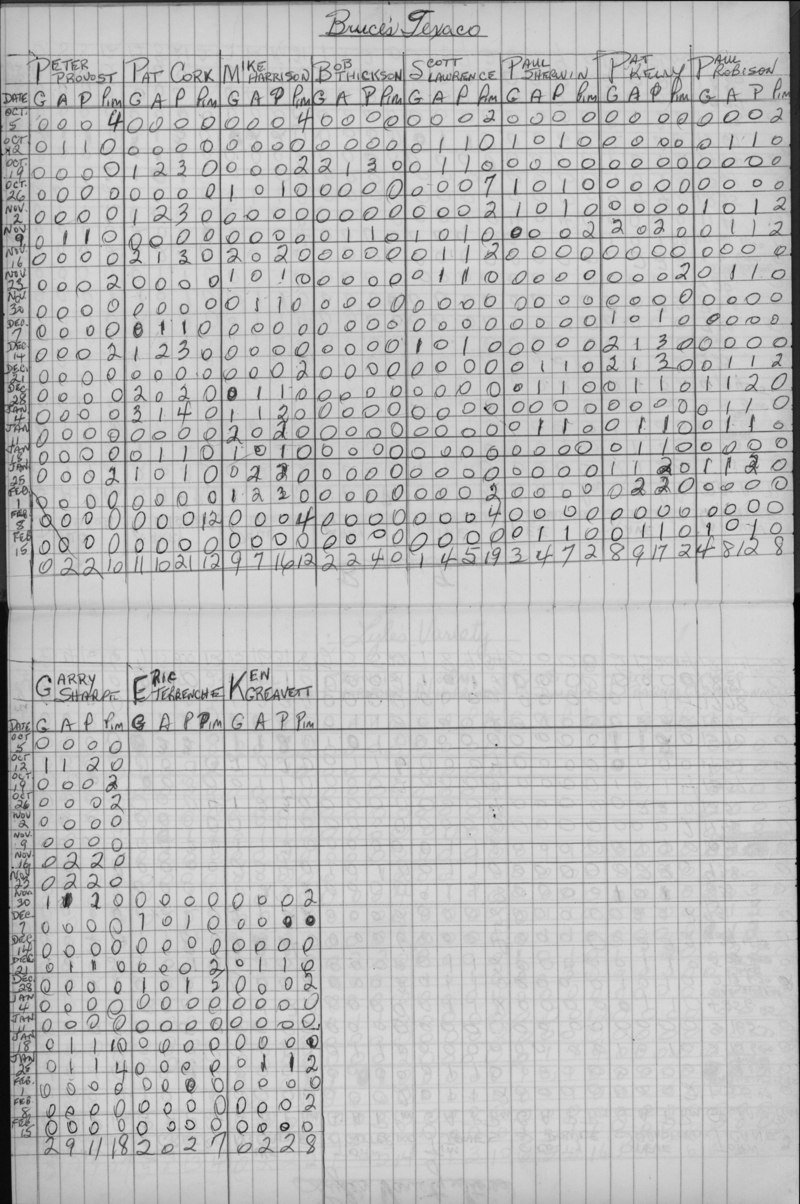 Bruce's Texaco
PETER PROVOST PAT CORK MIKE HARRISON BOB THICKSON SCOTT LAWRENCE PAUL SHERWIN PAT KELLY PAUL ROBISON
DATE G A P Pim G A P Pim G A P Pim G A P Pim G A P Pim G A P Pim G A P Pim G A P Pim
OCT. 5 0 0 0 4 0 0 0 0 0 0 0 4 0 0 0 0 0 0 0 2 0 0 0 0 0 0 0 0 0 0 0 2
OCT. 12 0 1 1 0 0 0 0 0 0 0 0 0 0 0 0 0 0 1 1 0 1 0 1 0 0 0 0 0 0 1 1 0
OCT. 19 0 0 0 0 1 2 3 0 0 0 0 2 2 1 3 0 0 1 1 0 0 0 0 0 0 0 0 0 0 0 0 0
OCT. 26 0 0 0 0 0 0 0 0 1 0 1 0 0 0 0 0 0 0 0 7 1 0 1 0 0 0 0 0 0 0 0 0
NOV. 2 0 0 0 0 1 2 3 0 0 0 0 0 0 0 0 0 0 0 0 2 1 0 1 0 0 0 0 0 1 0 1 2
NOV 9 0 1 1 0 0 0 0 0 0 0 0 0 0 1 1 0 1 0 1 0 0 0 0 2 2 0 2 0 0 1 1 2
NOV 16 0 0 0 0 2 1 3 0 2 0 2 0 0 0 0 0 0 1 1 2 0 0 0 0 0 0 0 0 0 0 0 0
NOV 23 0 0 0 2 0 0 0 0 1 0 1 0 0 0 0 0 0 1 1 0 0 0 0 0 0 0 0 2 0 1 1 0
NOV 30 0 0 0 0 0 0 0 0 0 1 1 0 0 0 0 0 0 0 0 0 0 0 0 0 0 0 0 0 0 0 0 0
DEC. 7 0 0 0 0 0 1 1 0 0 0 0 0 0 0 0 0 0 0 0 0 0 0 0 0 1 0 1 0 0 0 0 0
DEC 14 0 0 0 2 1 2 3 0 0 0 0 0 0 0 0 0 1 0 1 0 0 0 0 0 2 1 3 0 0 0 0 0
DEC. 21 0 0 0 0 0 0 0 0 0 0 0 2 0 0 0 0 0 0 0 0 0 1 1 0 2 1 3 0 0 1 1 2
DEC 28 0 0 0 0 2 0 2 0 0 1 1 0 0 0 0 0 0 0 0 0 0 1 1 0 0 1 1 0 1 1 2 0
JAN 4 0 0 0 0 3 1 4 0 1 1 2 0 0 0 0 0 0 0 0 0 0 0 0 0 0 0 0 0 0 1 1 0
JAN 11 0 0 0 0 0 0 0 0 2 0 2 0 0 0 0 0 0 0 0 0 0 1 1 0 0 1 1 0 0 1 1 0
JAN 18 0 0 0 0 0 1 1 0 1 0 1 0 0 0 0 0 0 0 0 0 0 0 0 0 0 1 1 0 0 0 0 0
JAN 25 0 0 0 2 1 0 1 0 0 2 2 0 0 0 0 0 0 0 0 0 0 0 0 0 1 1 2 0 1 1 2 0
FEB 1 0 0 0 0 0 0 0 0 1 2 2 0 0 0 0 0 0 0 0 2 0 0 0 0 0 2 2 0 0 0 0 0
FEB 8 0 0 0 0 0 0 0 12 0 0 0 4 0 0 0 0 0 0 0 4 0 0 0 0 0 0 0 0 0 0 0 0
FEB 15 0 0 0 0 0 0 0 0 0 0 0 0 0 0 0 0 0 0 0 0 0 1 1 0 0 1 1 0 1 0 1 0
0 2 2 10 11 10 21 12 9 7 16 12 2 2 4 0 1 4 5 19 3 4 7 2 8 9 17 2 4 8 12 8
GARRY SHARPE ERIC TERRENCHE KEN GREAVETT
DATE G A P Pim G A P Pim G A P Pim
OCT 5 0 0 0 0
OCT 12 1 1 2 0
OCT 19 0 0 0 2
OCT 26 0 0 0 2
NOV 2 0 0 0 0
NOV. 9 0 0 0 0
NOV. 16 0 2 2 0
NOV 23 0 2 2 0
NOV. 30 1 1 2 0 0 0 0 0 0 0 0 2
DEC. 7 0 0 0 0 1 0 1 0 0 0 0 0
DEC 14 0 0 0 0 0 0 0 0 0 0 0 0
DEC 21 0 1 1 0 0 0 0 2 0 1 1 0
DEC 28 0 0 0 0 1 0 1 5 0 0 0 2
JAN 4 0 0 0 0 0 0 0 0 0 0 0 0
JAN 11 0 0 0 0 0 0 0 0 0 0 0 0
JAN 18 0 1 1 10 0 0 0 0 0 0 0 0
JAN 25 0 1 1 4 0 0 0 0 0 1 1 2
FEB. 1 0 0 0 2 0 0 0 0 0 0 0 0
FEB 8 0 0 0 0 0 0 0 0 0 0 0 2
FEB 15 0 0 0 0 0 0 0 0 0 0 0 0
2 9 11 18 2 0 2 7 0 2 2 8